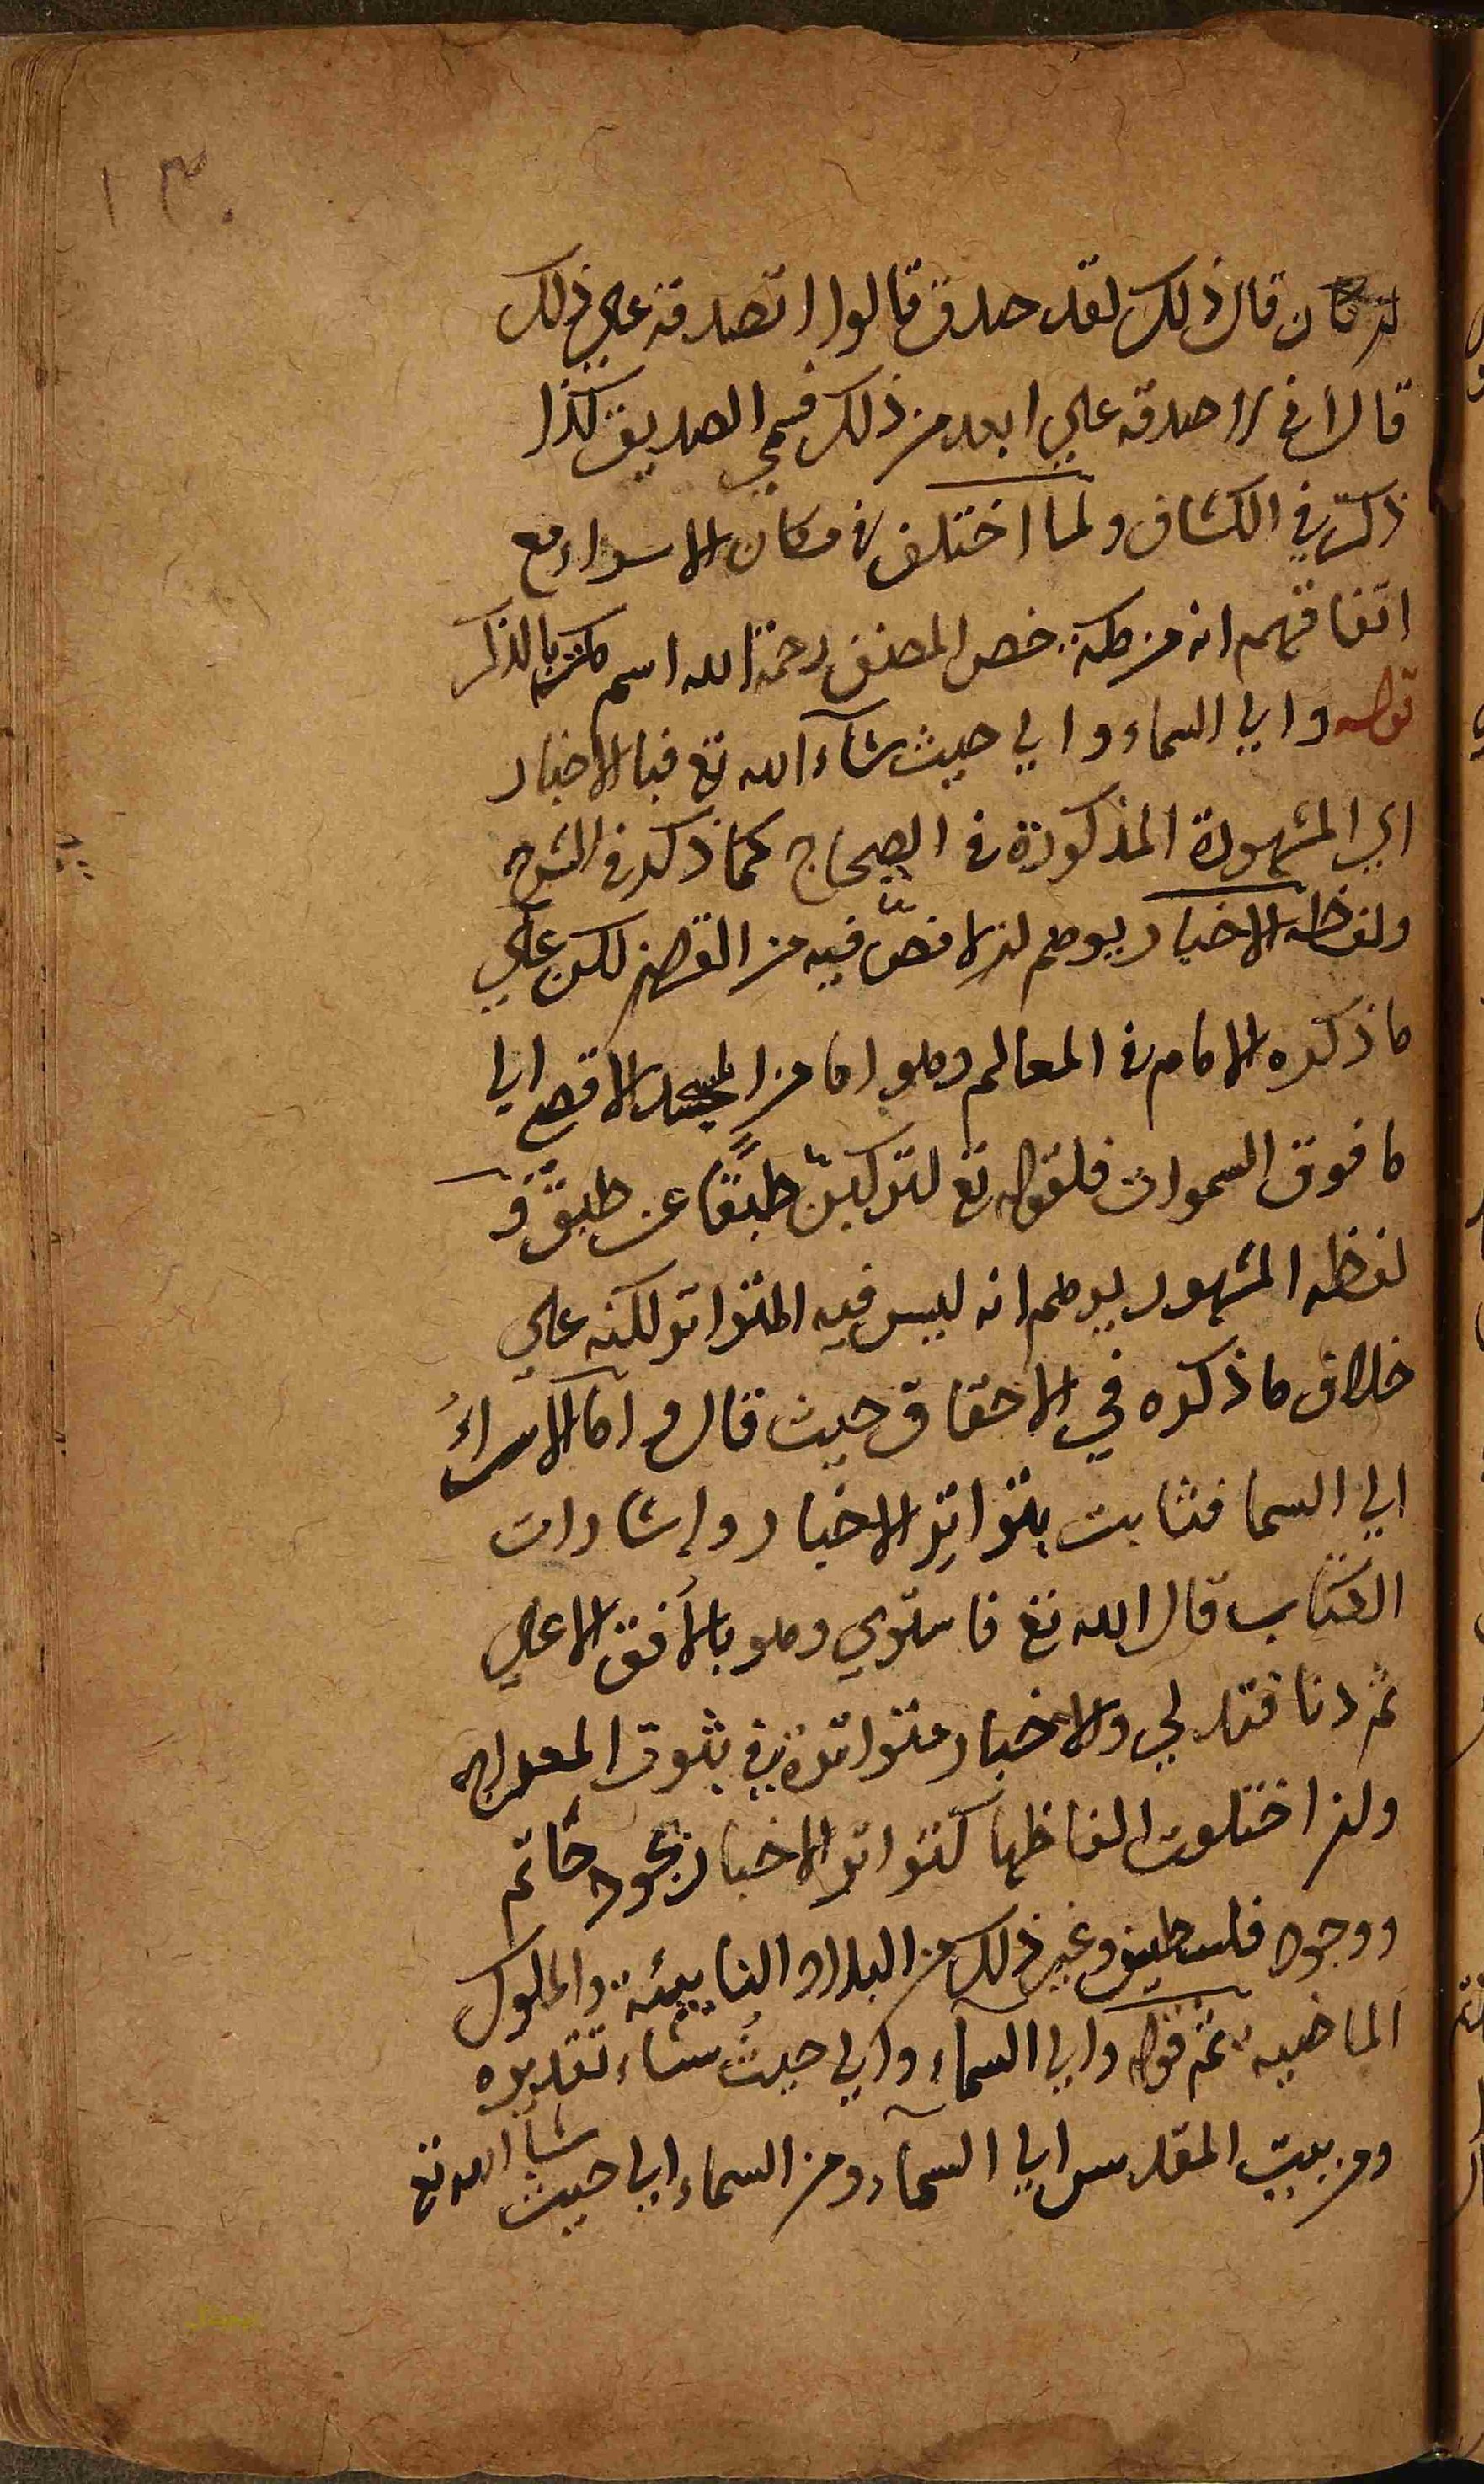 ١٣٠
ان كان قال ذلك لقد صدق قالوا اتصدقه علي ذلك
قال اني لاصدقه علي ابعد من ذلك فسمي الصديق كذا
ذكر في الكشاف ولما اختلف في مكان الاسراء مع
اتفاقهم انه من مكة خص المصنف رحمة الله اسم مكة بالذكر
قوله والي السماء والي حيث شآء الله تع فبالاخبار
اي المشهورة المذكورة في الصحاح كما ذكر في الشرح
ولفظه الاخبار يوهم ان لا نصّ فيه من القرآن لكن علي
ما ذكره الامام في المعالم وهو اما من المسجد الاقصي الي
ما فوق السموات فلقوله تع لتركبنّ طبقًا عن طبق و
لفظه المشهور يوهم انه ليس فيه المتواتر لكنه علي
خلاف ما ذكره في الاحقاق حيث قال واما الاسراءُ
الي السما فثابت بتواتِر الاخبار وإشارات
الكتاب قال الله تع فاستوي وهو بالأفق الاعلي
ثم دنا فتدلي والاخبار متواترة في ثبوت المعراج
وان اختلفت الفاظها كتواتر الاخبار بجود حاتم
ووجود فلسطين وغير ذلك من البلاد النايئة والملوك
الماضيه ثم قوله والي السمآء والي حيث شاء تقديره
ومن بيت المقدس الي السمآء ومن السماء الي حيث شا الله تع